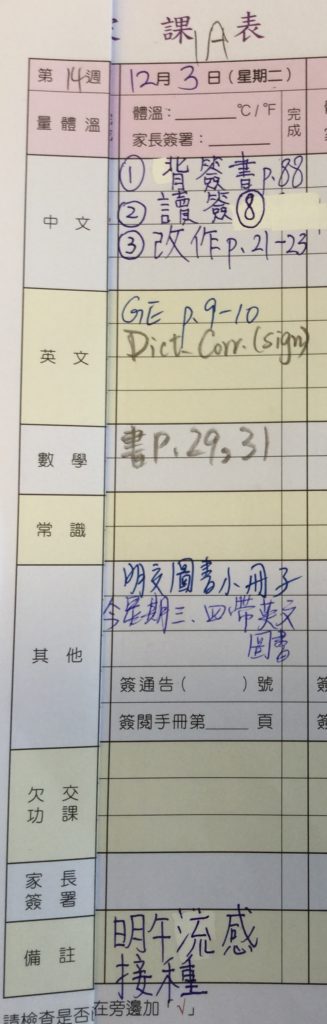 課 1A 表
第 14 週 12月 3 日(星期二)
量體溫 體溫:______℃/℉ 完成
家長簽署:______
中文
① 背簽書p.88
② 讀簽⑧
③ 改作p.21-23
英文
GE p.9-10
Dict. Corr.(sign)
數學
書P.29,31
常識
其他
明交圖書小冊子
今星期三、四帶英文
圖書
簽通告( )號
簽閱手冊第____頁
欠交功課
家長簽署
備註
明午流感
接種
請檢查是否 在旁邊加「√」